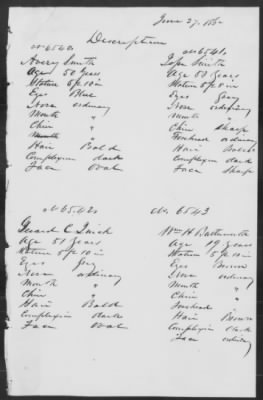 Description
Avery Smith
Age 50 Years
Stature 5 ft 10 in
Eyes Blue
Nose ordinary
Mouth "
Chin "
Mouth "
Hair Bald
Complexion dark
Face Oval
Smith
Age 50 Years
Stature 5 ft 8 in
Eyes Gray
Nose ordinary
Mouth "
Chin sharp
Forehead ordinary
Hair
Complexion dark
Face sharp
Age 51 Years
Stature 5 ft 10 in
Eyes Grey
Nose ordinary
Mouth "
Chin "
Hair Bald
Complexion dark
Face Oval
No. 6543
Wm H Butterworth
Age 19 Years
Stature 5 ft 10 in
Eyes Brown
Nose ordinary
Mouth "
Chin "
Forehead "
Hair Brown
Complexion dark
Face ordinary